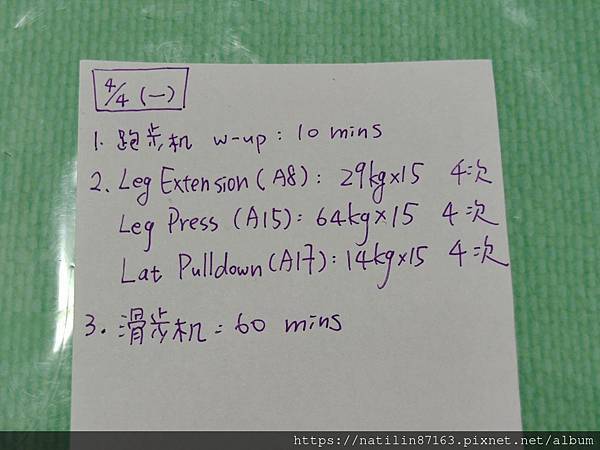 4/4 (一)
1. 跑步机 w-up : 10 mins
2. Leg Extension (A8) : 29kg×15 4次
Leg Press (A15) : 64kg×15 4次
Lat Pulldown (A17) : 14kg×15 4次
3. 滑步机 : 60 mins
https://natilin87163.pixnet.net/album